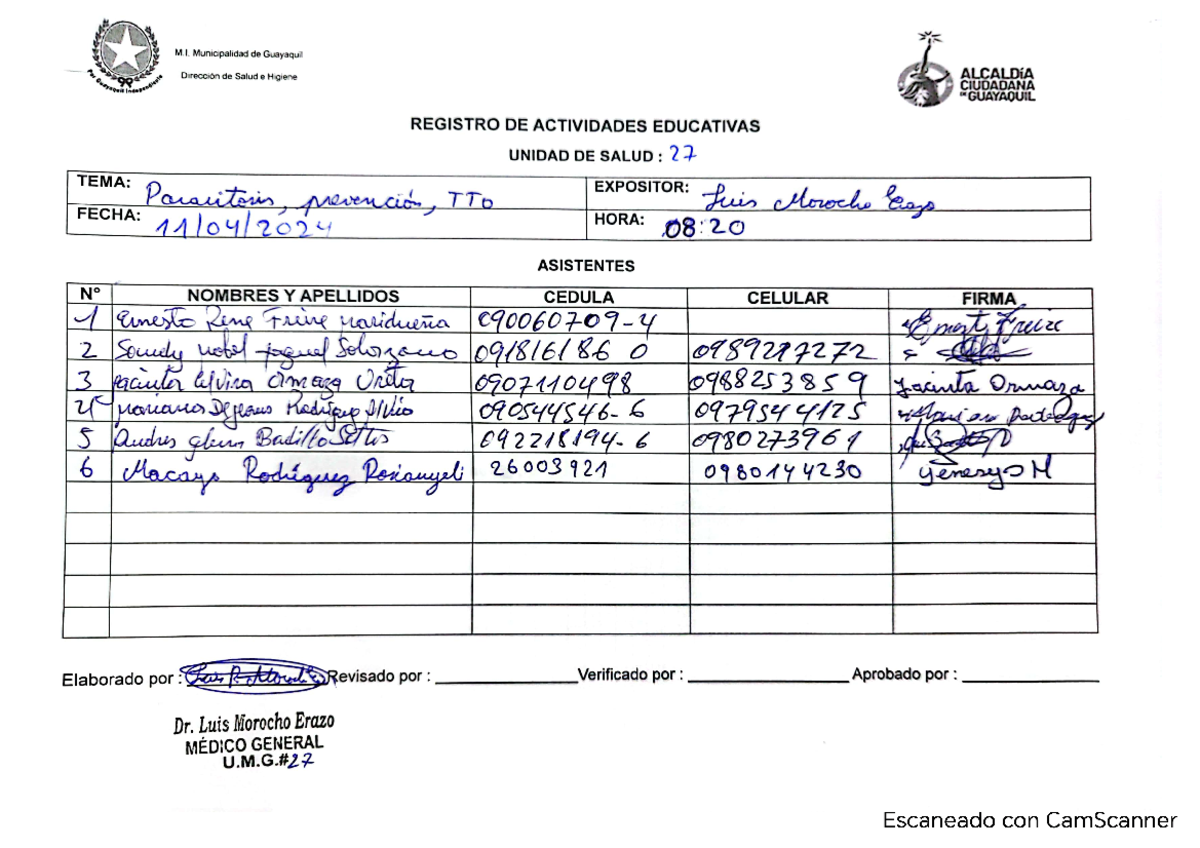 M.I. Municipalidad de Guayaquil
Dirección de Salud e Higiene
Por Guayaquil Independiente
ALCALDÍA
CIUDADANA
DE GUAYAQUIL
REGISTRO DE ACTIVIDADES EDUCATIVAS
UNIDAD DE SALUD : 27
TEMA: Parasitosis, prevención, TTo EXPOSITOR: Luis Morocho Erazo
FECHA: 11/04/2024 HORA: 08:20
ASISTENTES
N° NOMBRES Y APELLIDOS CEDULA CELULAR FIRMA
1 Ernesto Rene Freire Maridueña 090060709-4 Ernesto Freire
2 Solorzano 091816186 0 0989217272
3 Jacinta Elvira 0907110498 0988253859 Jacinta Ormaza
4 Mariano Rodriguez 090544546-6 0979544125 Mariano Rodriguez
5 Andres Badillo 092218194-6 0980273961
6 Macayo Rodríguez Rosianyeli 26003921 0980144230 Genesys M
Elaborado por : Revisado por : Verificado por : Aprobado por :
Dr. Luis Morocho Erazo
MÉDICO GENERAL
U.M.G.#27
Escaneado con CamScanner